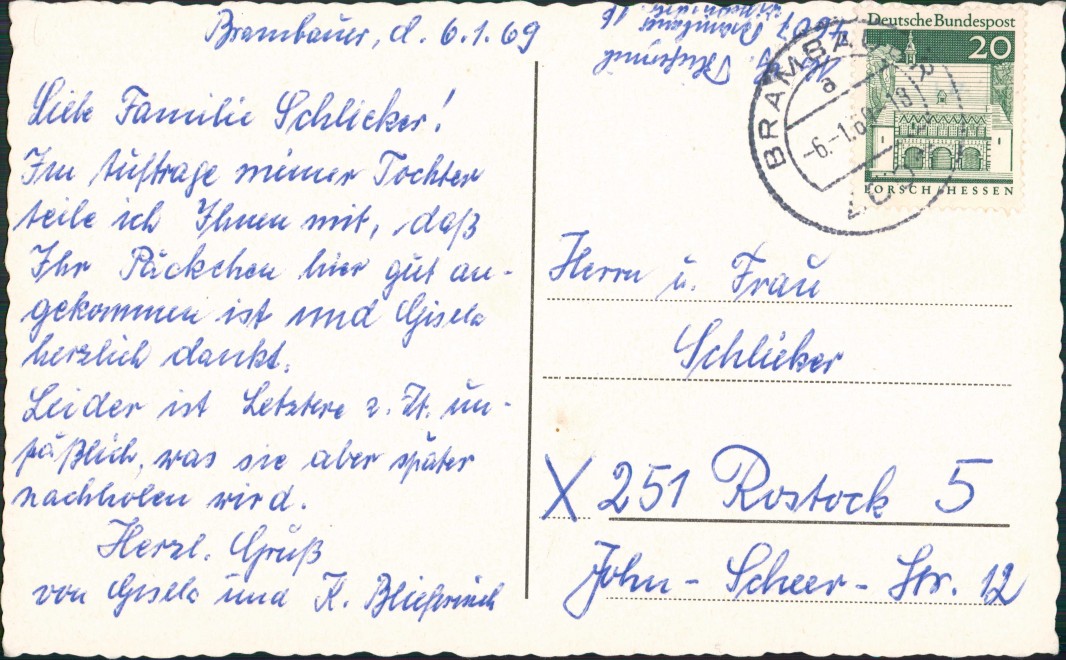 Brambauer, d. 6.1.69
Liebe Familie Schlicker!
Im Auftrage meiner Tochter
teile ich Ihnen mit, daß
Ihr Päckchen hier gut an-
gekommen ist und Gisela
herzlich dankt.
Leider ist Letztere z. Zt. un-
päßlich, was sie aber später
nachholen wird.
Herzl. Gruß
von Gisela und K.
4607 Brambauer
Deutsche Bundespost
20
LORSCH/HESSEN
BRAMBAUER
a
-6.-1.69-18
Herrn u. Frau
Schlicker
X 251 Rostock 5
John-Scheer-Str. 12